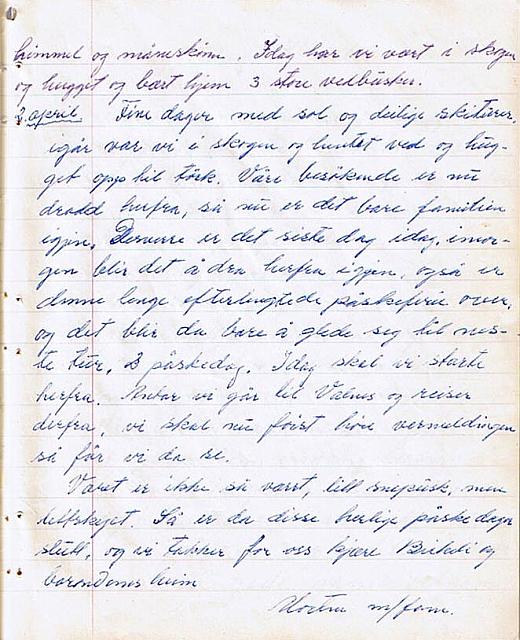 himmel og måneskinn. Idag har vi vært i skogen
og hugget og bært hjem 3 store vedbusker.
2. april. Fine dager med sol og deilige skiturer,
igår var vi i skogen og hentet ved og hug-
get opp til tørk. Våre besökende er nu
dradd herfra, så nu er det bare familien
igjen. Derverre er det siste dag idag, imor-
gen blir det å dra herfra igjen, også er
denne lenge efterlengtede påskeferie over,
og det blir da bare å glede seg til nes-
te tur. 3 påskedag. Idag skal vi starte
herfra. Antar vi går til Valnes og reiser
derfra, vi skal nu först höre vermeldingen
så får vi da se.
Været er ikke så værst, litt snepusk, men
lettskyet. Så er da disse herlige påskedager
slutt, og vi takker for oss kjære
heim
m/fam.